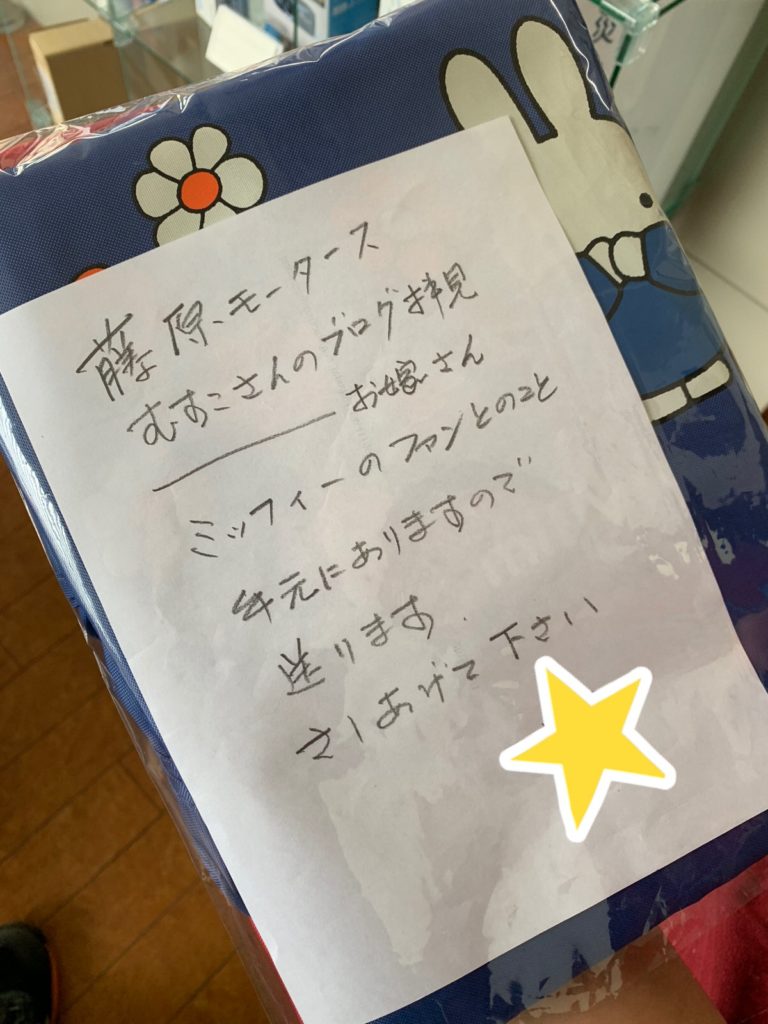 災
藤原モータース
むすこさんのブログ拝見
お嫁さん
ミッフィーのファンとのこと
手元にありますので
送ります.
さしあげて下さい